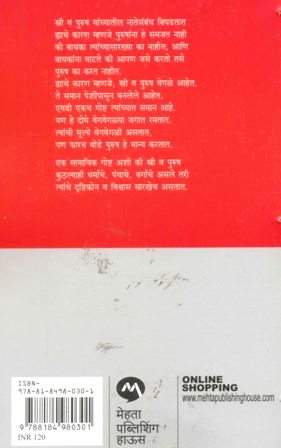 स्त्री व पुरुष यांच्यातील नातेसंबंध बिघडतात
ह्याचे कारण म्हणजे पुरुषांना हे समजत नाही
की बायका त्यांच्यासारख्या का नाहीत, आणि
बायकांना वाटते की आपण जसे करतो तसे
पुरुष का करत नाहीत.
ह्याचे कारण म्हणजे, स्त्री व पुरुष वेगळे आहेत.
ते समान पेशींपासून बनलेले आहेत,
एवढी एकच गोष्ट त्यांच्यात समान आहे,
पण हे दोघे वेगवेगळ्या जगात रमतात.
त्यांची मूल्ये वेगवेगळी असतात,
पण फारच थोडे पुरुष हे मान्य करतात.
एक सामायिक गोष्ट अशी की स्त्री व पुरुष
कुठल्याही धर्माचे, पंथाचे, वर्गाचे असले तरी
त्यांचे दृष्टिकोन व विश्वास सारखेच असतात.
ISBN-
978-81-8498-030-1
9 788184 980301
INR 120
मेहता
पब्लिशिंग
हाऊस
ONLINE
SHOPPING
www.mehtapublishinghouse.com